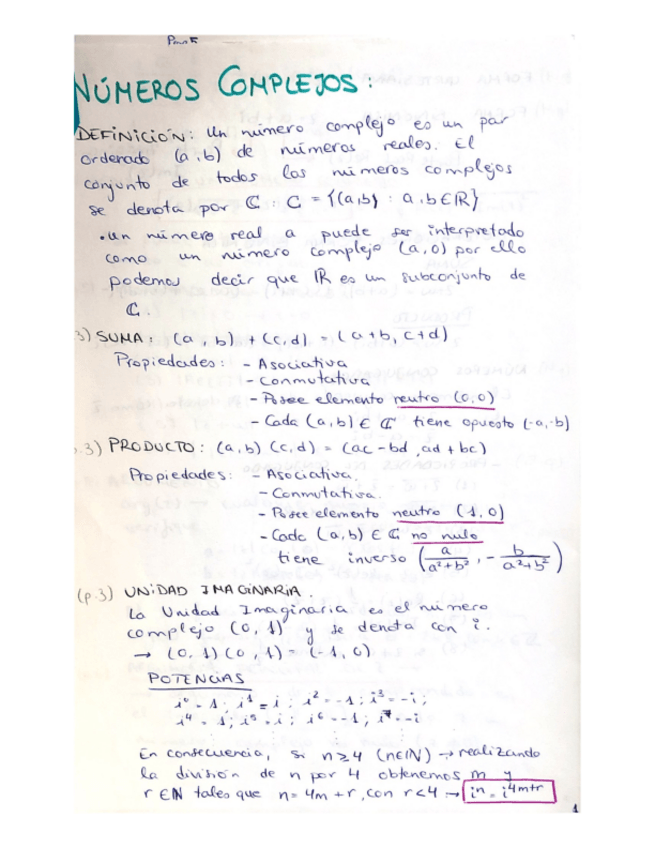 NÚMEROS COMPLEJOS:
DEFINICIÓN: Un número complejo es un par
ordenado (a,b) de números reales. El
conjunto de todos los números complejos
se denota por ℂ : ℂ = {(a,b) : a,b ∈ ℝ}
• Un número real a puede ser interpretado
como un número complejo (a,0) por ello
podemos decir que ℝ es un subconjunto de
ℂ.
3) SUMA: (a,b) + (c,d) = (a+b, c+d)
Propiedades: - Asociativa
- Conmutativa
- Posee elemento neutro (0,0)
- Cada (a,b) ∈ ℂ tiene opuesto (-a,-b)
.3) PRODUCTO: (a,b) (c,d) = (ac - bd, ad + bc)
Propiedades: - Asociativa.
- Conmutativa.
- Posee elemento neutro (1,0)
- Cada (a,b) ∈ ℂ no nulo
tiene inverso (a/(a²+b²), - b/(a²+b²))
(p.3) UNIDAD IMAGINARIA.
La Unidad Imaginaria es el número
complejo (0,1) y se denota con i.
→ (0,1)(0,1) = (-1,0)
POTENCIAS
i⁰ = 1; i¹ = i; i² = -1; i³ = -i;
i⁴ = 1; i⁵ = i; i⁶ = -1; i⁷ = -i
En consecuencia, si n ≥ 4 (n∈ℕ) → realizando
la división de n por 4 obtenemos m y
r ∈ ℕ tales que n = 4m + r, con r < 4 → iⁿ = i⁴ᵐ⁺ʳ
1